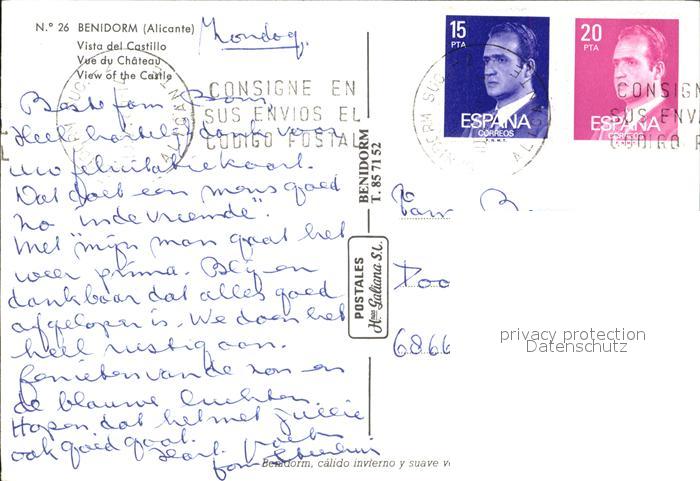 N.° 26 BENIDORM (Alicante)
Vista del Castillo
Vue du Château
View of the Castle
Zondag.
Beste fam
Heel hartelijk dank voor
uw felicitatiekaart.
Dat doet een mens goed
zo "in de vreemde".
Met mijn man gaat het
weer prima. Blij en
dankbaar dat alles goed
afgelopen is. We doen het
heel rustig aan.
Genieten van de zon en
de blauwe luchten.
Hopen dat het met jullie
ook goed gaat.
Hart. groeten
fam
CONSIGNE EN
SUS ENVIOS EL
CODIGO POSTAL
BENIDORM
T. 85 71 52
POSTALES
Hnos Galiana S.L.
15
PTA
ESPAÑA
CORREOS
20
PTA
ESPAÑA
CORREOS
CONSIGN
SUS ENVI
CODIGO P
ALICANTE
Fam
6866
privacy protection
Datenschutz
Benidorm, cálido invierno y suave v